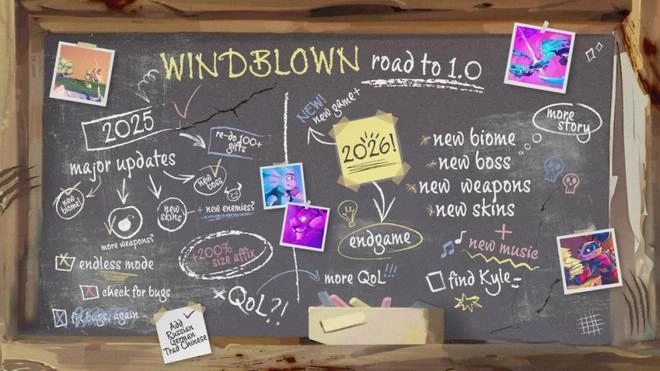 WINDBLOWN road to 1.0
2025
major updates
re-do 100+
gifts
new
biome!
more weapons?
new
skins
new
boss
+ new enemies?
endless mode
check for bugs
fix bugs, again
+200%
size affix
QoL?!
Add
Russian
German
Trad Chinese
NEW!
new game+
2026!
endgame
more QoL!!!
new biome
new boss
new weapons
new skins
+
new music
find Kyle
more
story